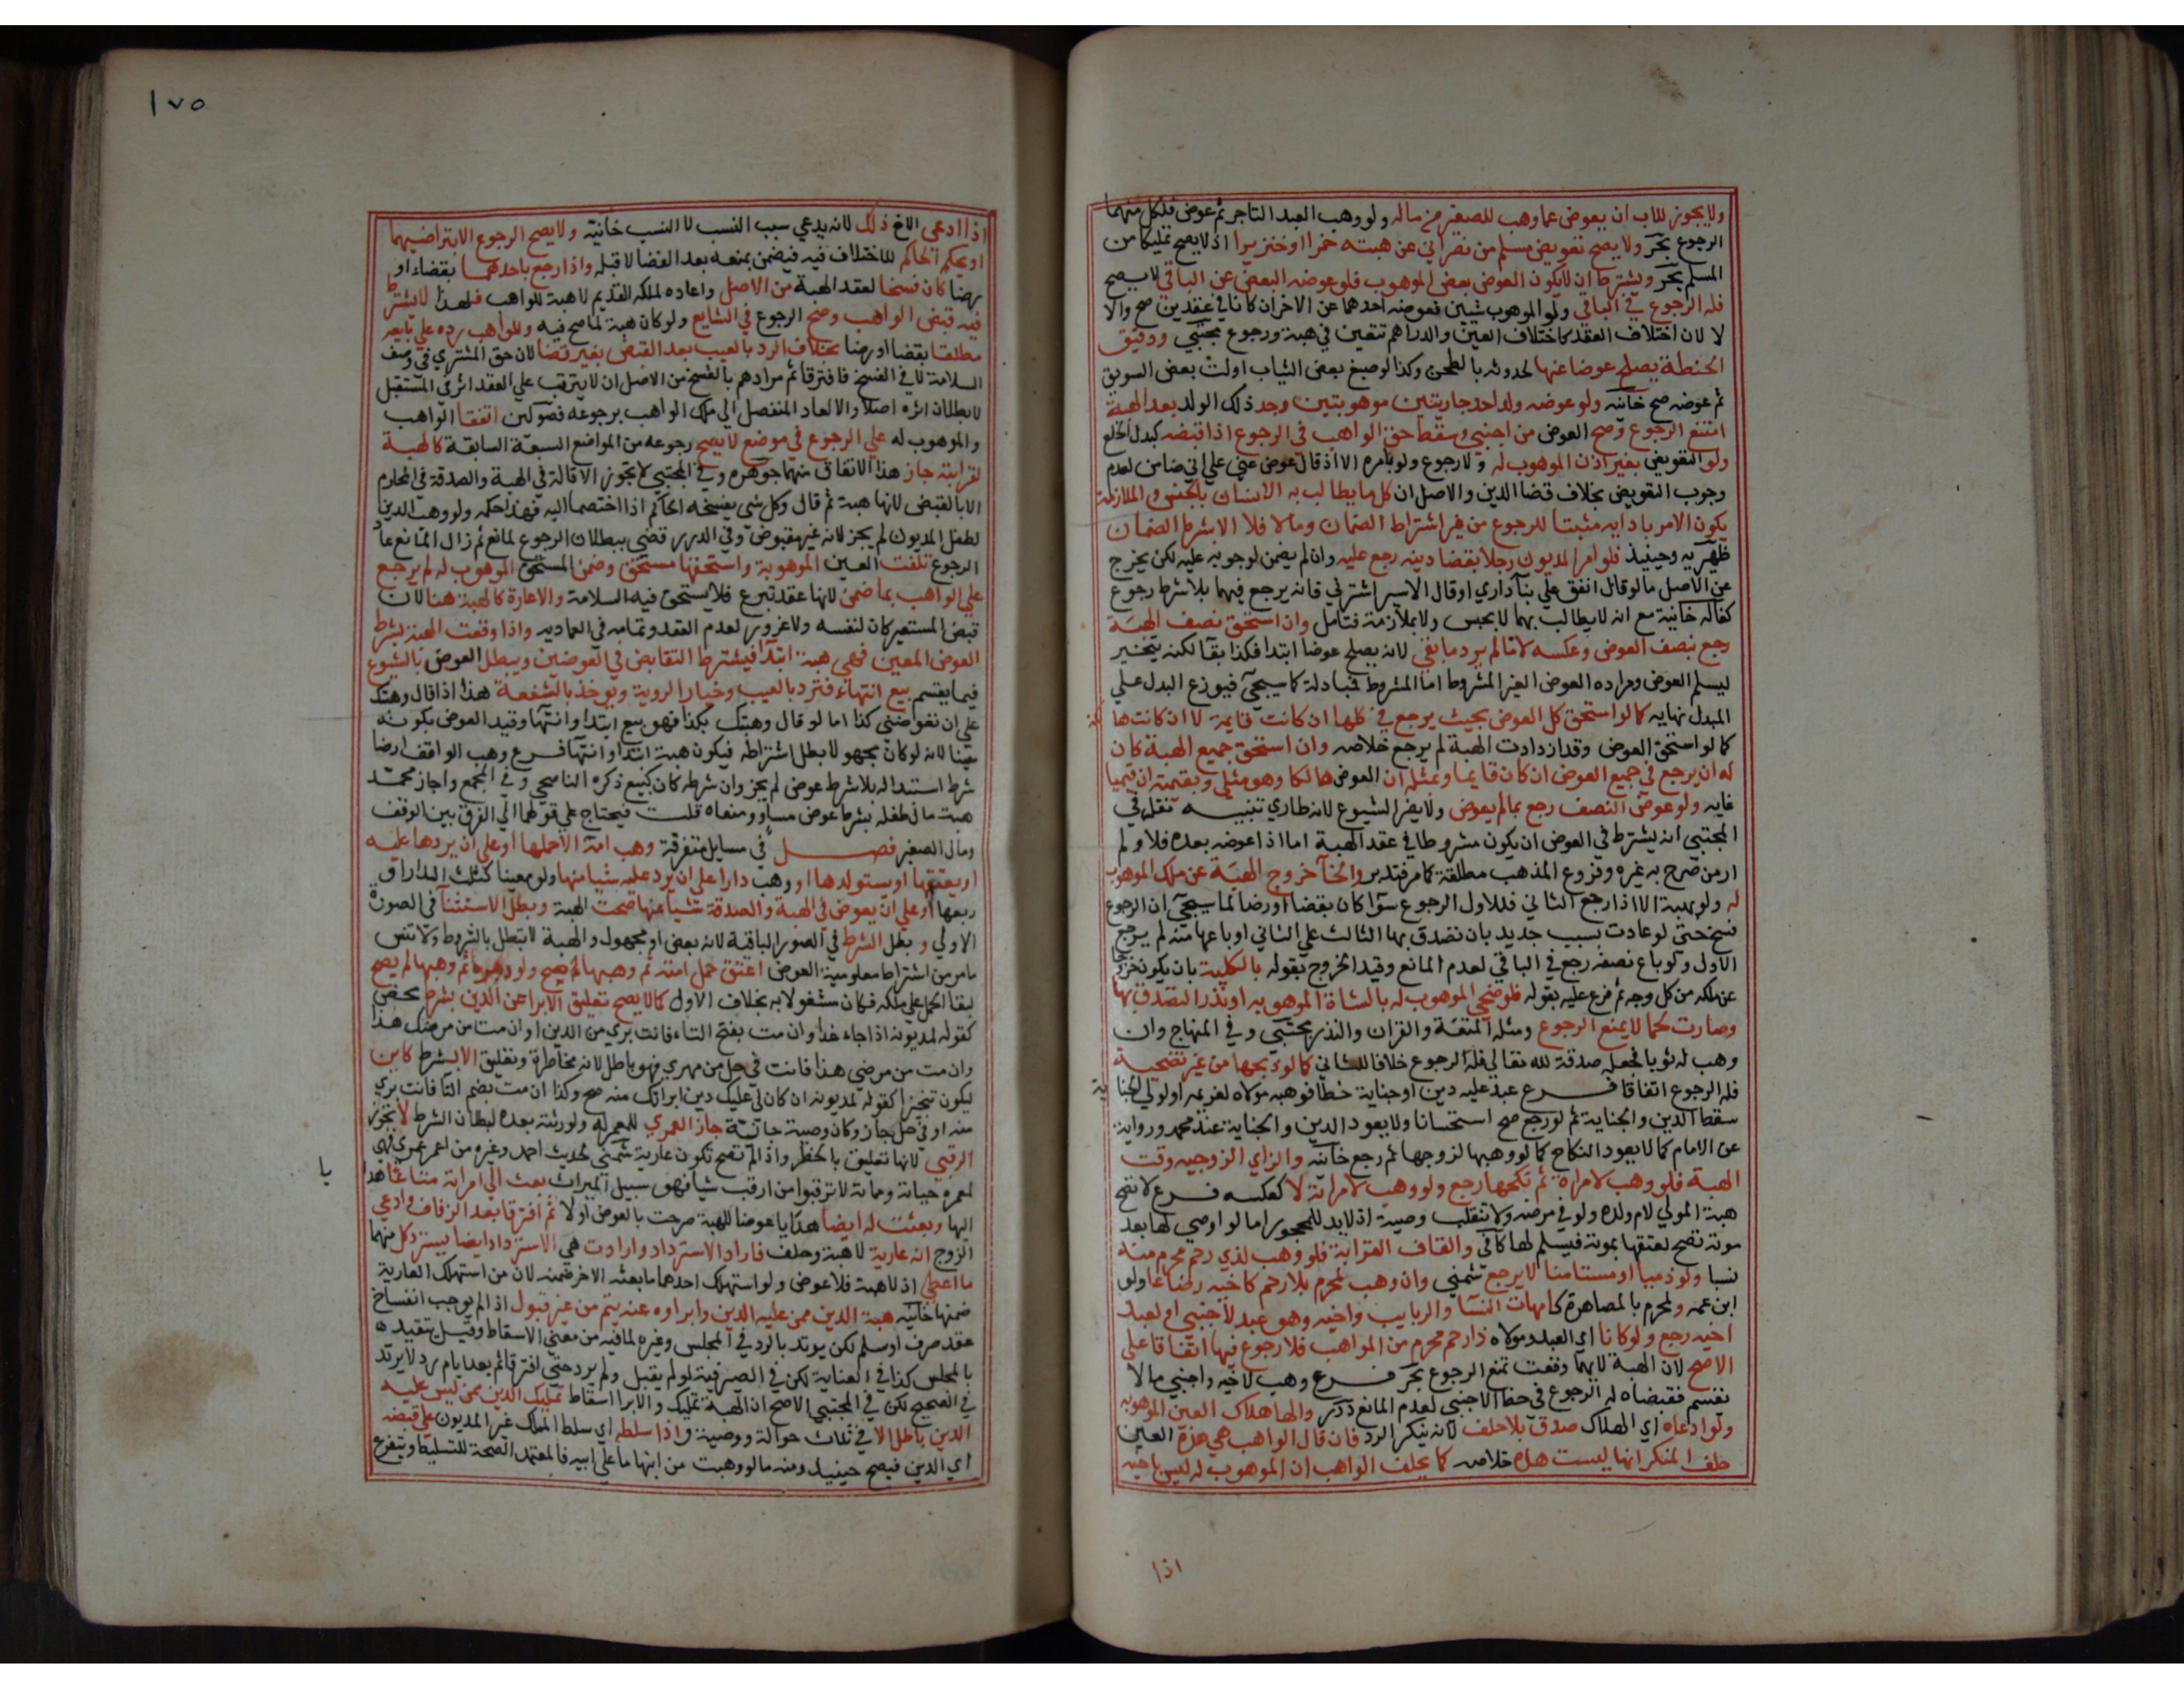 ولا يجوز للاب ان يعوض عما وهب للصغير من ماله ولو وهب العبد التاجر ثم عوض فلكل منهما
الرجوع بحر ولا يصح تعويض مسلم من نصراني عن هبته خمرا او خنزيرا اذ لا يصح تمليكا من
المسلم بحر ويشترط ان لا يكون العوض بعض الموهوب فلو عوضه البعض عن الباقي لا يصح
فله الرجوع في الباقي ولو الموهوب شيئين فعوضه احدهما عن الاخر ان كانا في عقدين صح والا
لا لان اختلاف العقد كاختلاف العين والدراهم تتعين في هبة ورجوع مجتبي ودقيق
الحنطة يصلح عوضا عنها لحدوثه بالطحن وكذا لو صبغ بعض الثياب او لت بعض السويق
ثم عوضه صح خانيه ولو عوضه ولد احد جاريتين موهوبتين وجد ذلك الولد بعد الهبة
امتنع الرجوع وصح العوض من اجنبي وسقط حق الواهب في الرجوع اذا قبضه كبدل الخلع
ولو التعويض بغير اذن الموهوب له ولا رجوع ولو بامره الا اذ قال عوض عني علي اني ضامن لعدم
وجوب التعويض بخلاف قضا الدين والاصل ان كل ما يطالب به الانسان بالحبس والملازمة
يكون الامر باداىه مثبتا للرجوع من غير اشتراط الضمان وما لا فلا الا بشرط الضمان
ظهيريه وحينيذ فلو امر المديون رجلا بقضا دينه رجع عليه وان لم يضمن لوجوبه عليه لكن يخرج
عن الاصل ما لو قال انفق علي بنا داري او قال الاسير اشترني فانه يرجع فيهما بلا شرط رجوع
كفاله خانية مع انه لا يطالب بهما لا بحبس ولا بملازمة فتامل وان استحق نصف الهبة
رجع بنصف العوض وعكسه لا ما لم يرد ما بقي لانه يصلح عوضا ابتدا فكذا بقا لكنه يتخير
ليسلم العوض ومراده العوض الغير المشروط اما المشروط فمبادلة كما سيجي فيوزع البدل علي
المبدل نهايه كما لو استحق كل العوض بحيث يرجع في كلها ان كانت قايمة لا ان كانت هالكة
كما لو استحق العوض وقد ازدادت الهبة لم يرجع خلاصه وان استحق جميع الهبة كان
له ان يرجع في جميع العوض ان كان قايما وبمثله ان العوض هالكا وهو مثلي وبقيمته ان قيميا
غايه ولو عوض النصف رجع بما لم يعوض ولا يضر الشيوع لانه طاري تنبيه نقل في
المجتبي انه يشترط في العوض ان يكون مشروطا في عقد الهبة اما اذا عوضه بعده فلا ولم
ار من صرح به غيره وفروع المذهب مطلقة كما مر فتدبر والخا خروج الهبة عن ملك الموهوب
له ولو بهبة الا اذا رجع الثاني فللاول الرجوع سوا كان بقضا او رضا لما سيجي ان الرجوع
فسخ حتي لو عادت بسبب جديد بان تصدق بها الثالث علي الثاني او باعها منه لم يرجع
الاول ولو باع نصفه رجع في الباقي لعدم المانع وقيد الخروج بقوله بالكلية بان يكون خروجا
عن ملكه من كل وجه ثم فرع عليه بقوله فلو ضحي الموهوب له بالشاة الموهوبه او نذر التصدق بها
وصارت لحما لا يمنع الرجوع ومثله المتعة والقران والنذر مجتبي وفي المنهاج وان
وهب له ثوبا فجعله صدقة لله تعالي فله الرجوع خلافا للثاني كما لو ذبحها من غير تضحية
فله الرجوع اتفاقا فرع عبد عليه دين او جناية خطا فوهبه مولاه لغريمه او لولي الجناية
سقط الدين والجناية ثم لو رجع صح استحسانا ولا يعود الدين والجناية عند محمد ورواية
عن الامام كما لا يعود النكاح كما لو وهبها لزوجها ثم رجع خانيه والزاي الزوجيه وقت
الهبة فلو وهب لامراة ثم نكحها رجع ولو وهب لامراته لا كعكسه فرع لا تصح
هبة المولي لام ولده ولو في مرضه ولا تنقلب وصية اذ لا يد للمحجور اما لو اوصي لها بعد
موته تصح لعتقها بموته فيسلم لها كافي والقاف القرابة فلو وهب لذي رحم محرم منه
نسبا ولو ذميا او مستامنا لا يرجع شمني وان وهب لمحرم بلا رحم كاخيه رضاعا ولو
ابن عمه ولمحرم بالمصاهرة كامهات النسا والربايب واخيه وهو عبد لاجنبي او لعبد
اخيه رجع ولو كانا اي العبد ومولاه ذا رحم محرم من المواهب فلا رجوع فيها اتفاقا علي
الاصح لان الهبة لايهما وقعت تمنع الرجوع بحر فرع وهب لاخيه واجنبي ما لا
يقسم فقبضاه له الرجوع في حظ الاجنبي لعدم المانع درر والها هلاك العين الموهوبه
ولو ادعاه اي الهلاك صدق بلا حلف لانه ينكر الرد فان قال الواهب هي هذه العين
حلف المنكر انها ليست هذه خلاصه كما يحلف الواهب ان الموهوب له ليس باخيه
اذا
١٧٥
اذا ادعي الاخ ذلك لانه يدعي سبب النسب لا النسب خانية ولا يصح الرجوع الا بتراضيهما
او بحكم الحاكم للاختلاف فيه فيضمن بمنعه بعد القضا لا قبله واذا رجع باحدهما بقضاء او
رضا كان فسخا لعقد الهبة من الاصل واعاده لملكه القديم لا هبة للواهب فلهذا لا يشترط
فيه قبض الواهب وصح الرجوع في الشايع ولو كان هبة لما صح فيه وللواهب رده علي بايعه
مطلقا بقضا او رضا بخلاف الرد بالعيب بعد القبض بغير قضا لان حق المشتري في وصف
السلامة لا في الفسخ فافترقا ثم مرادهم بالفسخ من الاصل ان لا يترتب علي العقد اثر في المستقبل
لا بطلان اثره اصلا والا لعاد المنفصل الي ملك الواهب برجوعه فصولين اتفقا الواهب
والموهوب له علي الرجوع في موضع لا يصح رجوعه من المواضع السبعة السابقة كالهبة
لقرابته جاز هذا الاتفاق منهما جوهره وفي المجتبي لا تجوز الاقالة في الهبة والصدقة في المحارم
الا بالقبض لانها هبة ثم قال وكل شي يفسخه الحاكم اذا اختصما اليه فهذا حكمه ولو وهب الدين
لطفل المديون لم يجز لانه غير مقبوض وفي الدرر قضي ببطلان الرجوع لمانع ثم زال المانع عاد
الرجوع تلفت العين الموهوبة واستحقها مستحق وضمن المستحق الموهوب له لم يرجع
علي الواهب بما ضمن لانها عقد تبرع فلا يستحق فيه السلامة والاعارة كالهبة هنا لان
قبض المستعير كان لنفسه ولا غرور لعدم العقد وتمامه في العماديه واذا وقعت الهبة بشرط
العوض المعين فهي هبة ابتدا فيشترط التقابض في العوضين ويبطل العوض بالشيوع
فيما يقسم بيع انتهاء فترد بالعيب وخيار الروية ويوخذ بالشفعة هذا اذا قال وهبتك
علي ان تعوضني كذا اما لو قال وهبتك بكذا فهو بيع ابتدا وانتها وقيد العوض بكونه
معينا لانه لو كان مجهولا بطل اشتراطه فيكون هبة ابتدا وانتها فرع وهب الواقف ارضا
شرط استبداله بلا شرط عوض لم يجز وان شرطه كان كبيع ذكره الناصحي وفي المجمع واجاز محمد
هبة مال طفله بشرط عوض مساو ومنعاه قلت فيحتاج علي قولهما الي الفرق بين الوقف
ومال الصغير فصل في مسايل متفرقة وهب امة الا حملها او علي ان يردها عليه
او يعتقها او يستولدها او وهب دارا علي ان يرد عليه شيا منها ولو معينا كثلث الدار او
ربعها او علي ان يعوض في الهبة والصدقة شيا عنها صحت الهبة وبطل الاستثنا في الصورة
الاولي وبطل الشرط في الصور الباقية لانه بعض او مجهول والهبة لا تبطل بالشروط ولا تنس
ما مر من اشتراط معلومية العوض اعتق حمل امته ثم وهبها صح ولو دبره ثم وهبها لم يصح
لبقا الحمل علي ملكه فكان مشغولا به بخلاف الاول كما لا يصح تعليق الابرا عن الدين بشرط محض
كقوله لمديونه اذا جاء غدا وان مت بفتح التاء فانت بري من الدين او ان مت من مرضك هذا
وان مت من مرضي هذا فانت في حل من مهري فهو باطل لانه مخاطرة وتعليق الا بشرط كاين
ليكون تنجيزا كقوله لمديونه ان كان لي عليك دين ابراتك منه صح وكذا ان مت بضم التا فانت بري
منه او في حل جاز وكان وصية خانية جاز العمري للمعمر له ولورثته بعده لبطلان الشرط لا تجوز
الرقبي لانها تعليق بالخطر واذ الم تصح تكون عارية شمني لحديث احمد وغيره من اعمر عمري فهي
لمعمره حياته ومماته لا ترقبوا من ارقب شيا فهو سبيل الميراث بعث الي امراته متاعا هدايا
اليها وبعثت له ايضا هدايا عوضا للهبة صرحت بالعوض او لا ثم افترقا بعد الزفاف وادعي
الزوج انه عارية لا هبة وحلف فاراد الاسترداد وارادت هي الاسترداد ايضا يسترد كل منهما
ما اعطي اذ لا هبة فلا عوض ولو استهلك احدهما ما بعثه الاخر ضمنه لان من استهلك العارية
ضمنها خانيه هبة الدين ممن عليه الدين وابراوه عنه يتم من غير قبول اذ الم يوجب انفساخ
عقد صرف او سلم لكن يرتد بالرد في المجلس وغيره لما فيه من معني الاسقاط وقيل يتقيد
بالمجلس كذا في العناية لكن في الصيرفية لو لم يقبل ولم يرد حتي افترقا ثم بعد ايام رد لا يرتد
في الصحيح لكن في المجتبي الاصح ان الهبة تمليك والابرا اسقاط تمليك الدين ممن ليس عليه
الدين باطل الا في ثلاث حوالة ووصية واذا سلطه اي سلط المملك غير المديون علي قبضه
اي الدين فيصح حينيذ ومنه ما لو وهبت من ابنها ما علي ابيه فالمعتمد الصحة للتسليط ويتفرع